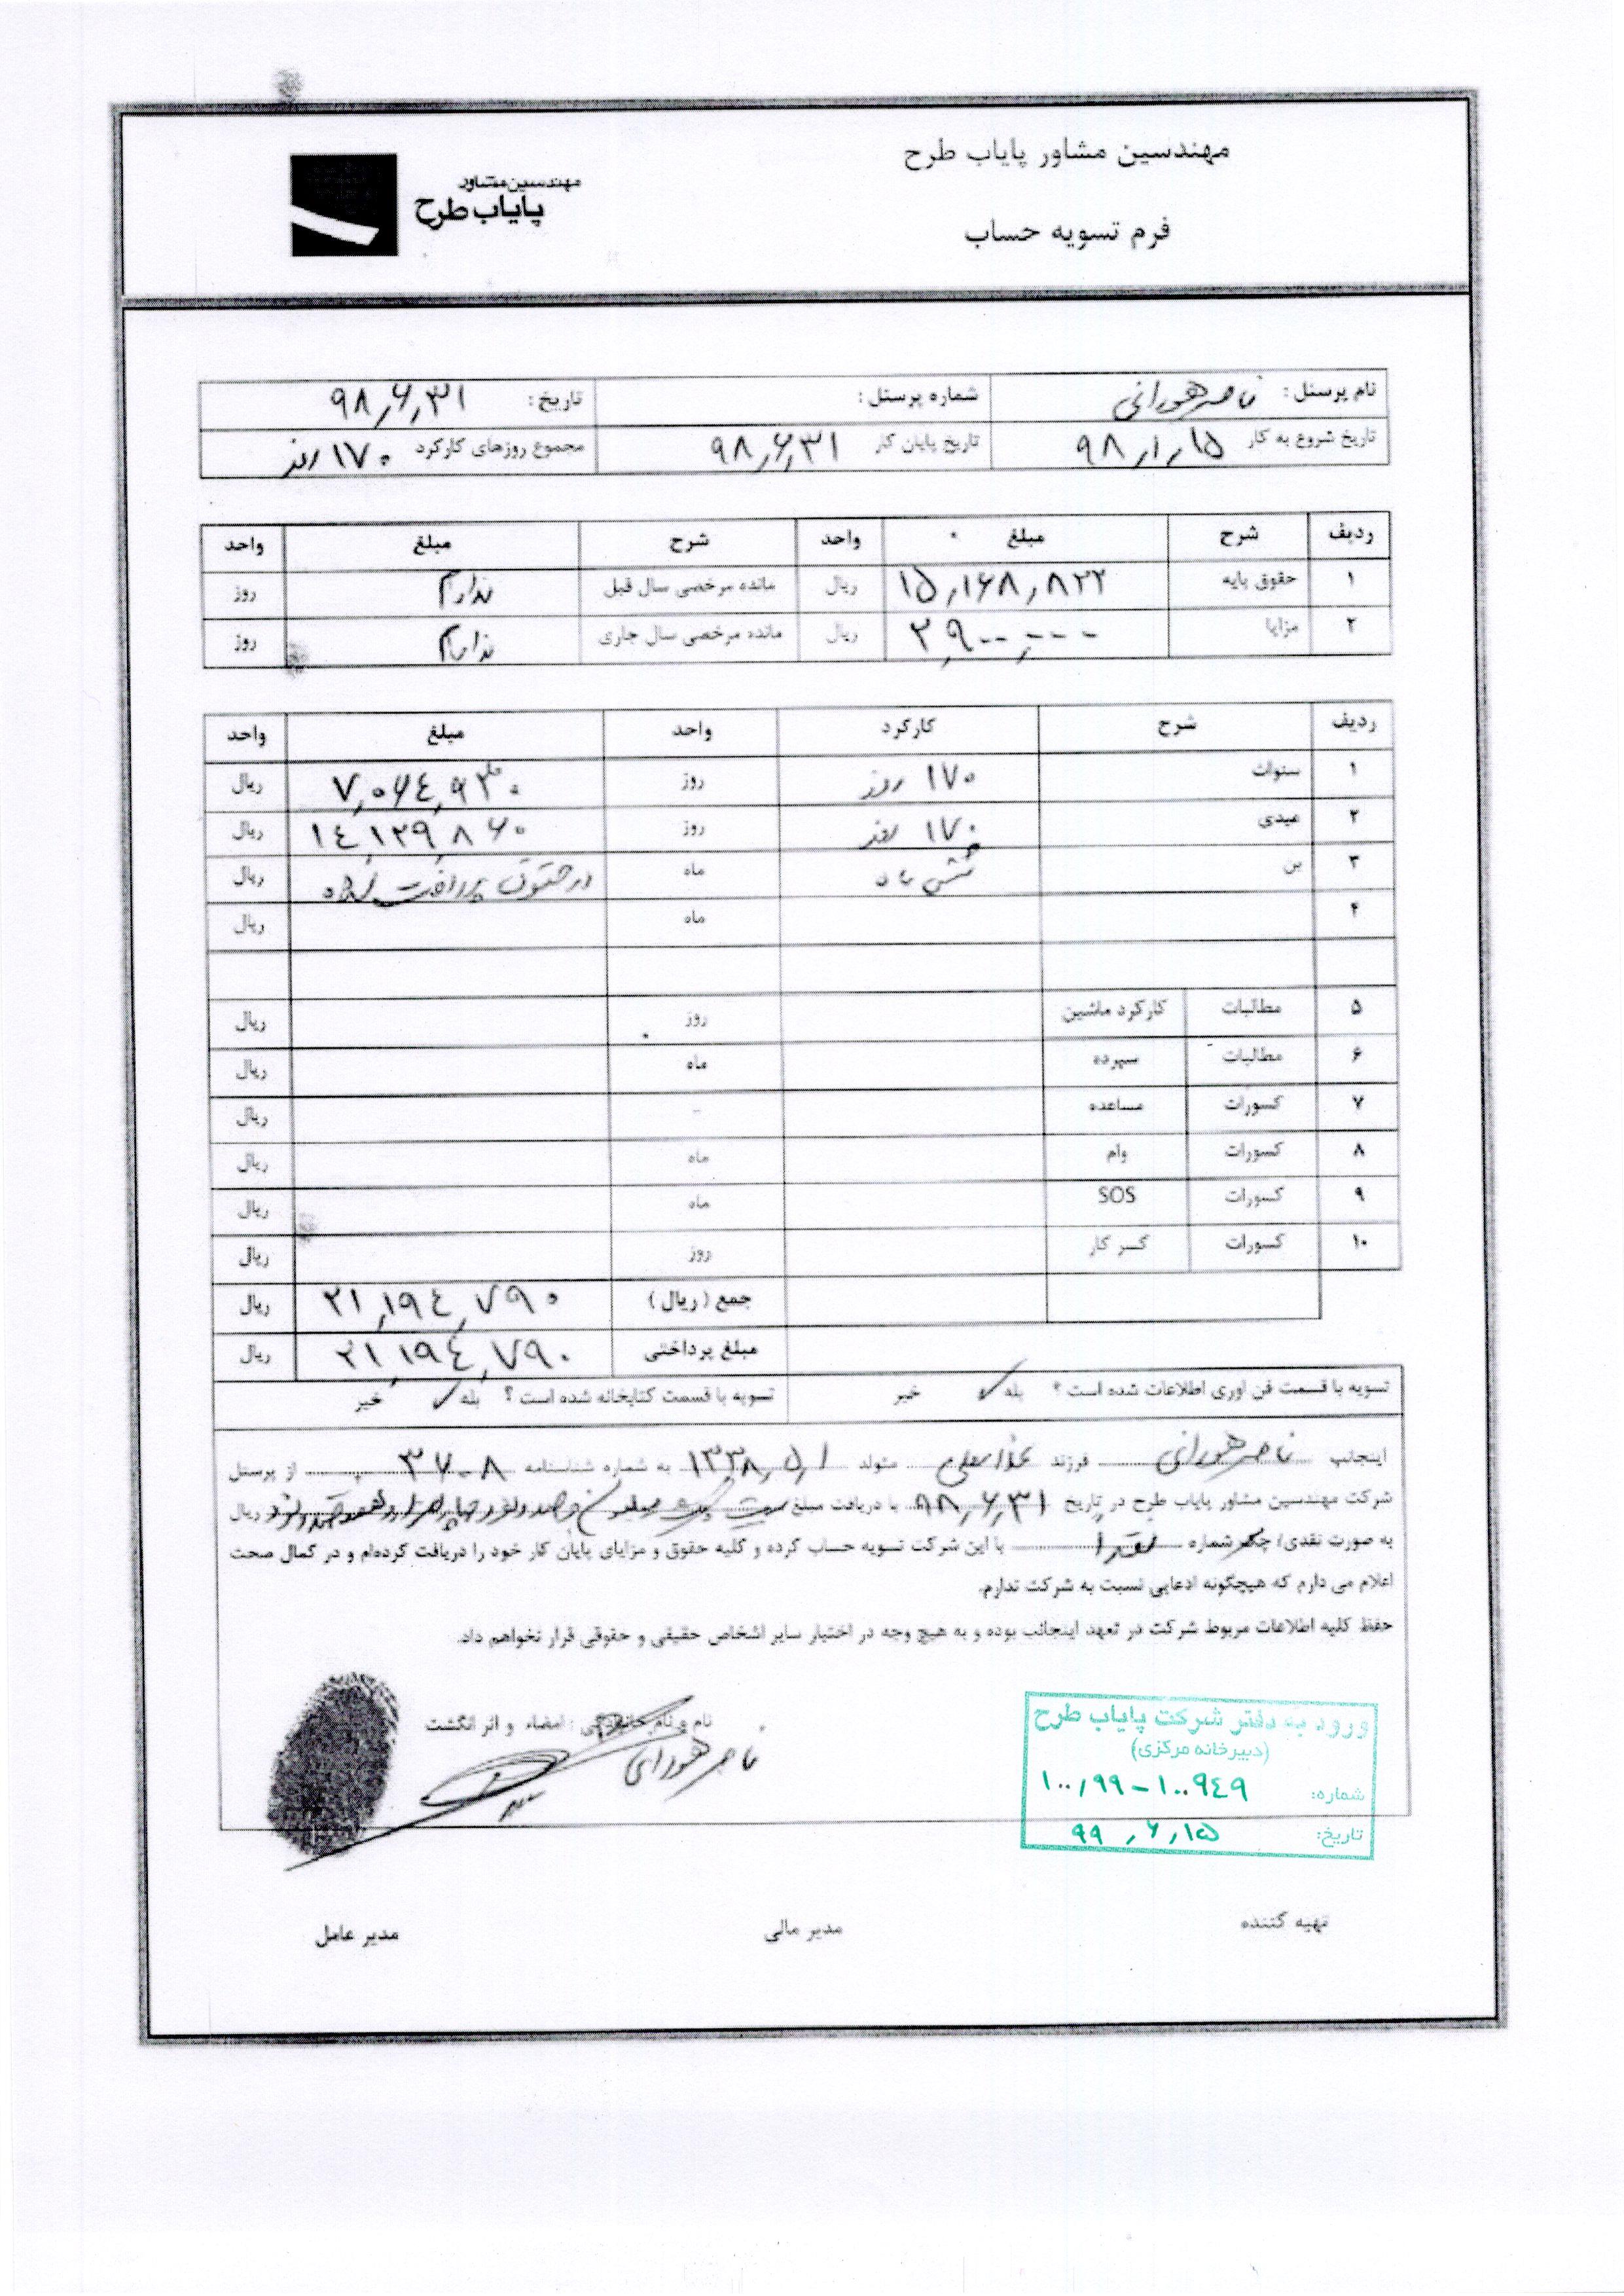 مهندسین مشاور پایاب طرح
مهندسین مشاور
پایاب طرح
فرم تسویه حساب
نام پرسنل : ناصر هورانی شماره پرسنل : تاریخ : ۹۸,۶,۳۱
تاریخ شروع به کار ۹۸,۱,۱۵ تاریخ پایان کار ۹۸,۶,۳۱ مجموع روزهای کارکرد ۱۷۰ روز
ردیف شرح مبلغ واحد شرح مبلغ واحد
۱ حقوق پایه ۱۵,۱۶۸,۸۲۲ ریال مانده مرخصی سال قبل ندارم روز
۲ مزایا ۳,۹۰۰,۰۰۰ ریال مانده مرخصی سال جاری ندارم روز
ردیف شرح کارکرد واحد مبلغ واحد
۱ سنوات ۱۷۰ روز روز ۷,۰۶۴,۹۳۰ ریال
۲ عیدی ۱۷۰ روز روز ۱۴,۱۲۹,۸۶۰ ریال
۳ بن شش ماه ماه در حقوق پرداخت شده ریال
۴ ماه ریال
۵ مطالبات کارکرد ماشین روز ریال
۶ مطالبات سپرده ماه ریال
۷ کسورات مساعده - ریال
۸ کسورات وام ماه ریال
۹ کسورات SOS ماه ریال
۱۰ کسورات کسر کار روز ریال
جمع ( ریال ) ۲۱,۱۹٤,۷۹۰ ریال
مبلغ پرداختی ۲۱,۱۹٤,۷۹۰ ریال
تسویه با قسمت فن اوری اطلاعات شده است ؟ بله ✓ خیر تسویه با قسمت کتابخانه شده است ؟ بله ✓ خیر
اینجانب ناصر هورانی فرزند متولد ۱۳۳۸,۵,۱ به شماره شناسنامه ۳۷۰۸ از پرسنل
شرکت مهندسین مشاور پایاب طرح در تاریخ ۹۸,۶,۳۱ با دریافت مبلغ بیست و یک میلیون و صد و نود و چهار هزار و هفتصد و نود ریال
به صورت نقدی/ چک شماره نقداً با این شرکت تسویه حساب کرده و کلیه حقوق و مزایای پایان کار خود را دریافت کرده‌ام و در کمال صحت
اعلام می دارم که هیچگونه ادعایی نسبت به شرکت ندارم.
حفظ کلیه اطلاعات مربوط شرکت در تعهد اینجانب بوده و به هیچ وجه در اختیار سایر اشخاص حقیقی و حقوقی قرار نخواهم داد.
نام و نام خانوادگی : امضاء و اثر انگشت
ناصر هورانی
ورود به دفتر شرکت پایاب طرح
(دبیرخانه مرکزی)
شماره: ۱۰۰,۹۹-۱۰۰۹٤۹
تاریخ: ۹۹,۶,۱۵
تهیه کننده مدیر مالی مدیر عامل